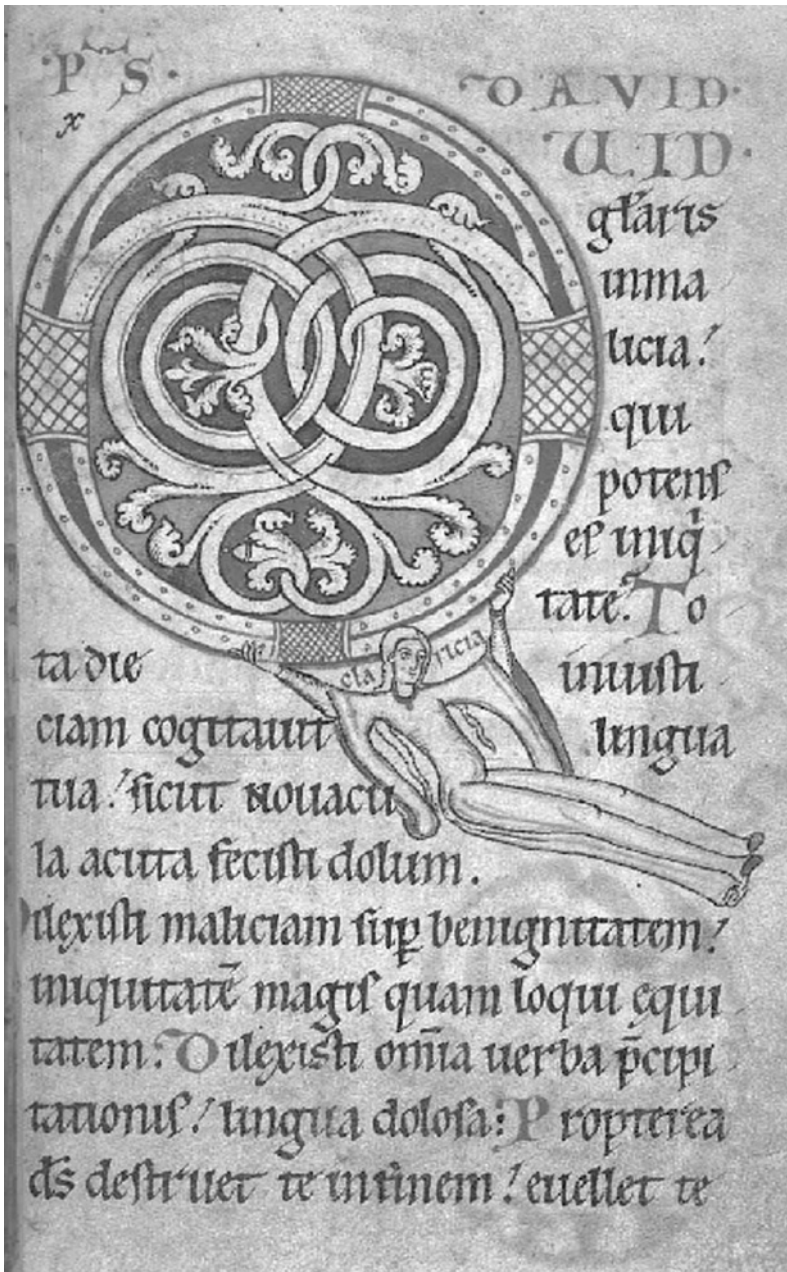 PS. DAVID.
x
UID.
gl̄aris
inma
licia!
qui
potens
es iniq̇
tate. To
ta die iniusti
cla ricia
ciam cogitauit lingua
tua! sicut nouacu
la acuta fecisti dolum.
Dilexisti maliciam sup̱ benignitatem!
iniquitatē magis quam loqui ęqui
tatem: Dilexisti om̄ia uerba p̄cipi
tationis! lingua dolosa: Propterea
d̄s destruet te infinem! euellet te